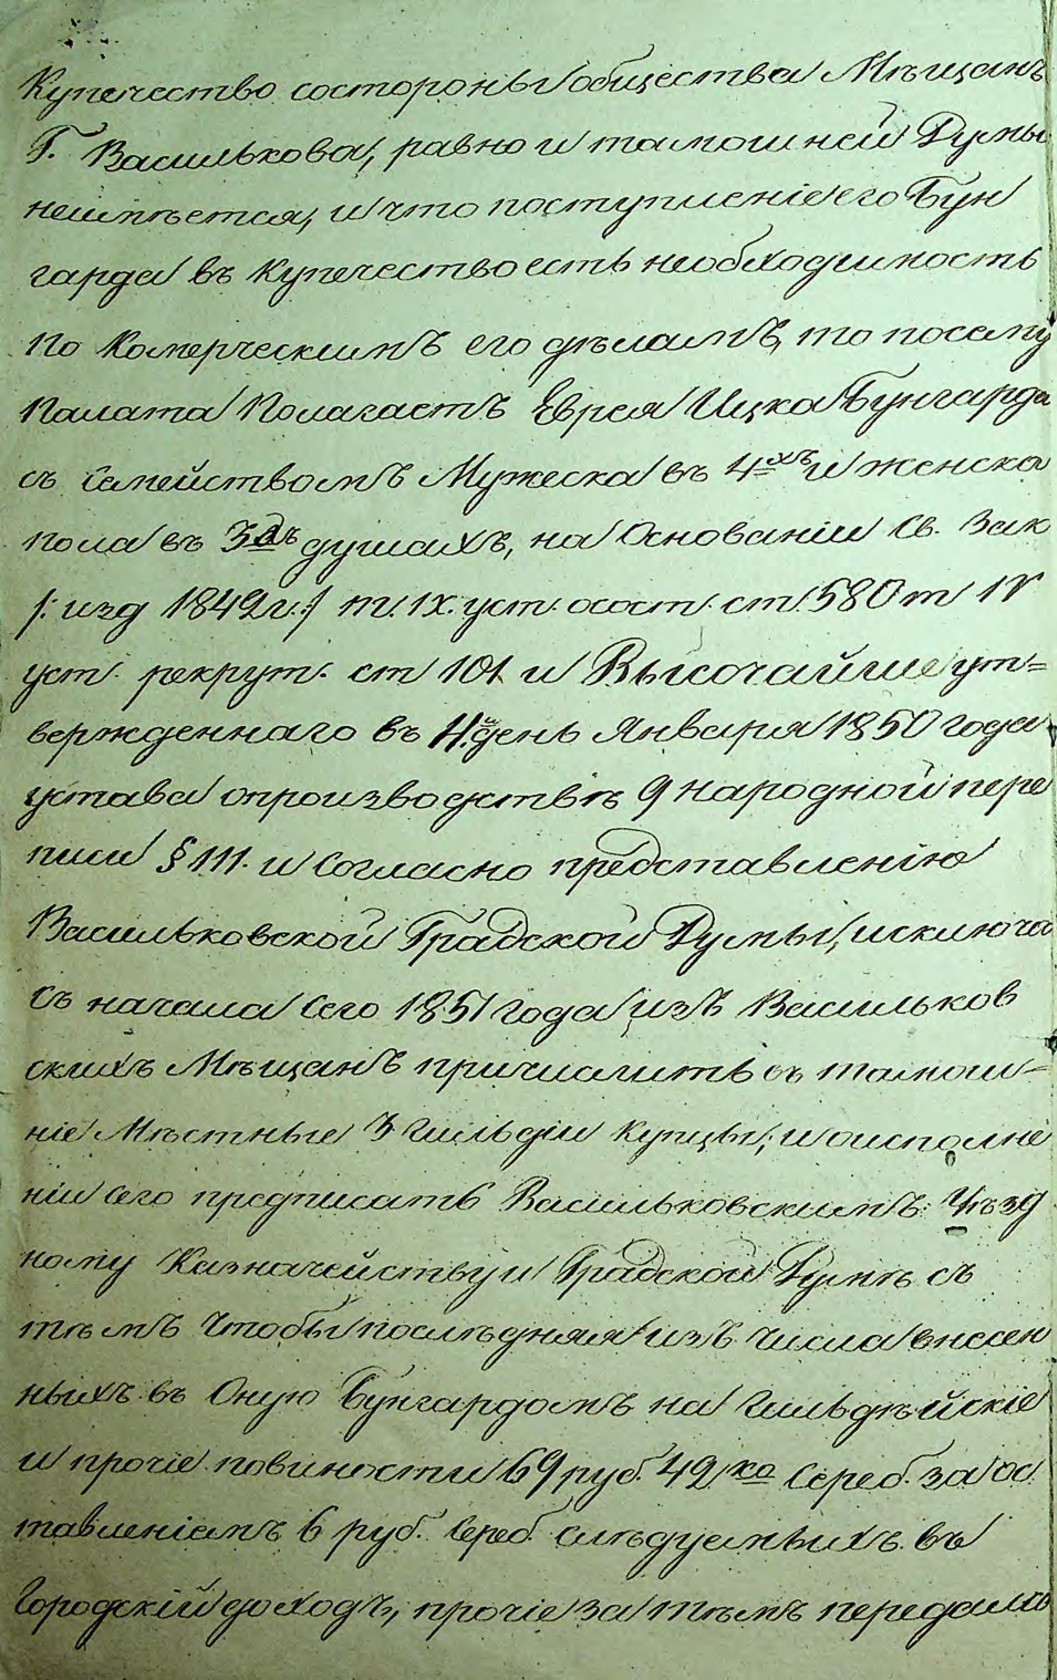 Купечество состороны общества Мѣщанъ
Г. Василькова, равно и тамошней Думы
неимѣется, и что поступленіе его Бун
гарда въ купечество есть необходимость
по Комерческимъ его дѣламъ, то посему
Палата Полагаетъ Еврея Ицка Бунгарда
съ Семействомъ Мужеска въ 4хъ и женска
пола въ 3хъ душахъ, на Основаніи Св. Зак
/: изд 1842 г. :/ т. IX. уст. осост. ст. 580 т IV
уст. рекрут. ст 101 и Высочайше ут=
вержденнаго въ 11й день Января 1850 года
устава опроизводствѣ 9 народной пере
писи § 111. и Согласно представленію
Васильковской Градской Думы, исключа
съ начала Сего 1851 года изъ Васильков
скихъ Мѣщанъ причислить въ тамош=
ніе Мѣстные 3 Гильдіи купцы; и оисполне
ніи Сего предписать Васильковскимъ: Уѣзд
ному Казначейству и Градской Думѣ съ
тѣмъ Чтобы послѣдняя изъ числа внесен
ныхъ въ Оную Бунгардомъ на Гильдѣйскіе
и прочіе повиности 69 руб. 42 ко Сереб. за ос
тавленіемъ 6 руб. Сереб. слѣдуемыхъ въ
Городскій доходъ, прочіе за тѣмъ передала